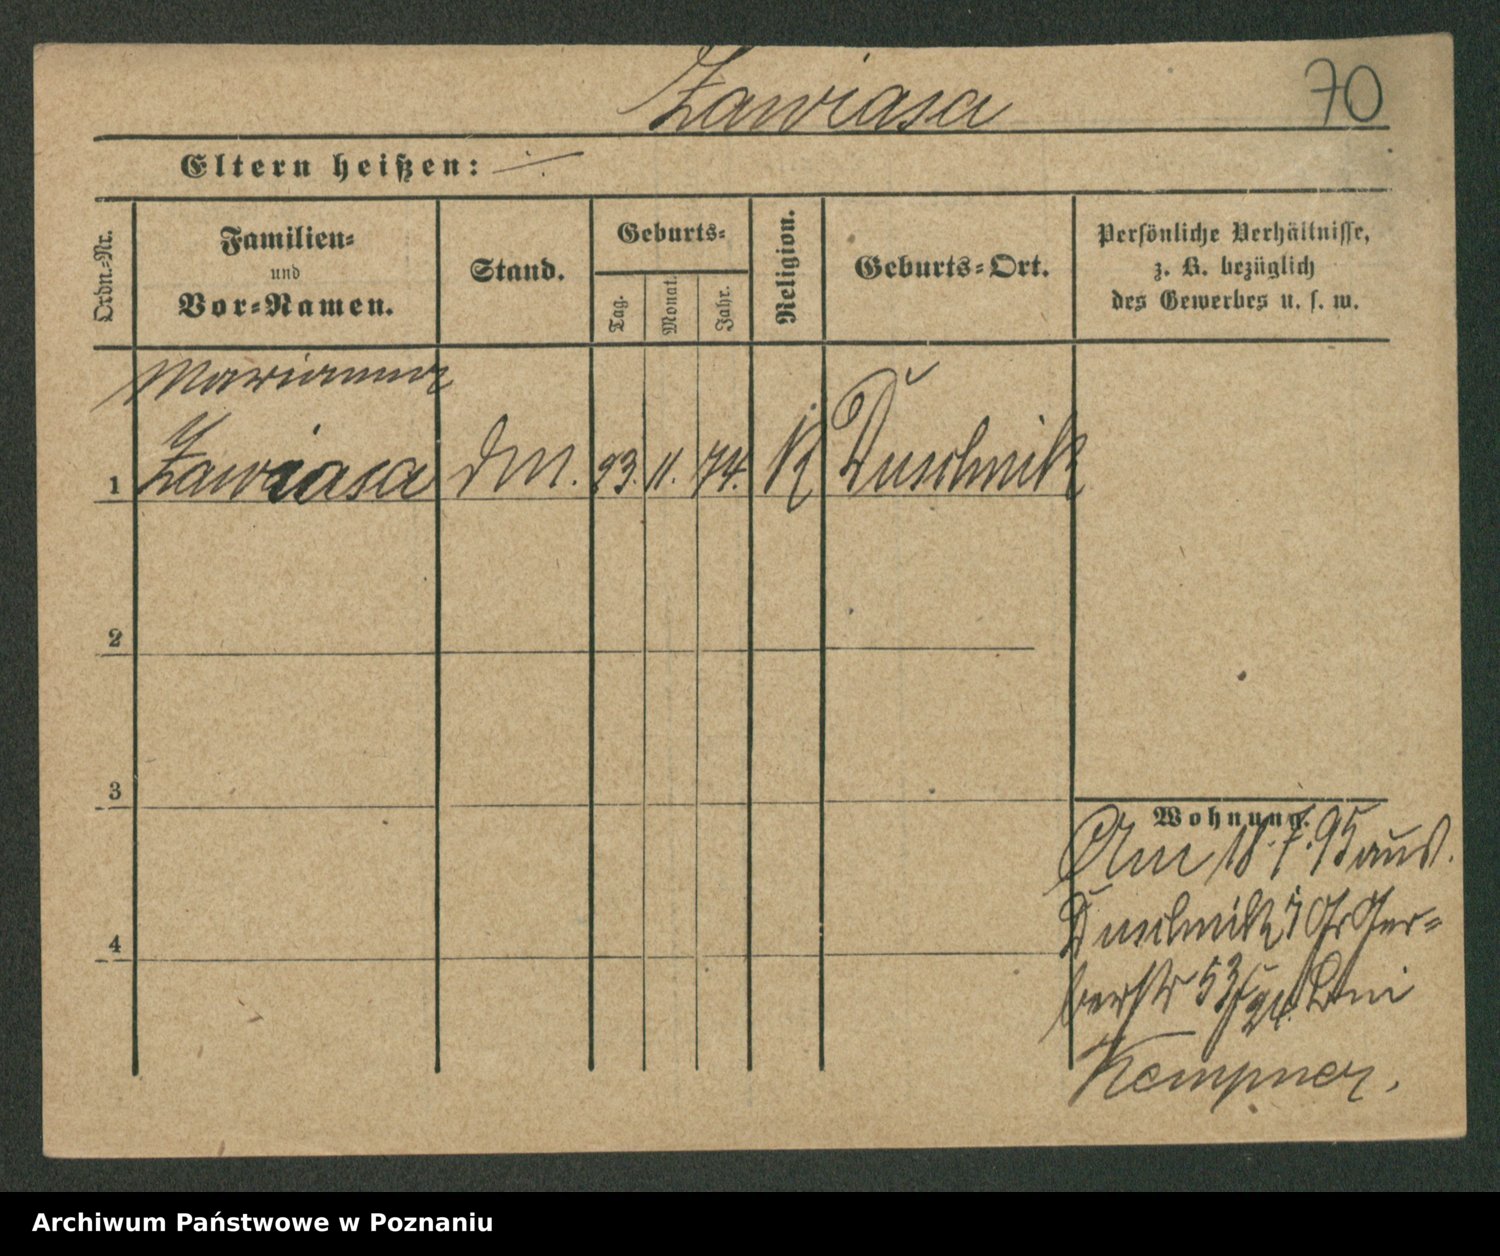 Zawiasa
70
Eltern heißen: ·/·
Ordn.-Nr.
Familien-
und
Vor-Namen.
Stand.
Geburts-
Tag.
Monat.
Jahr.
Religion.
Geburts-Ort.
Persönliche Verhältnisse,
z. B. bezüglich
des Gewerbes u. s. w.
Marianna
1 Zawiasa DM. 23. 11. 74. K Duschnik
2
3
4
Wohnung.
Am 18.7.95 aus
Duschnik Gr Ger-
berstr 53 bei
Kempner.
Archiwum Państwowe w Poznaniu